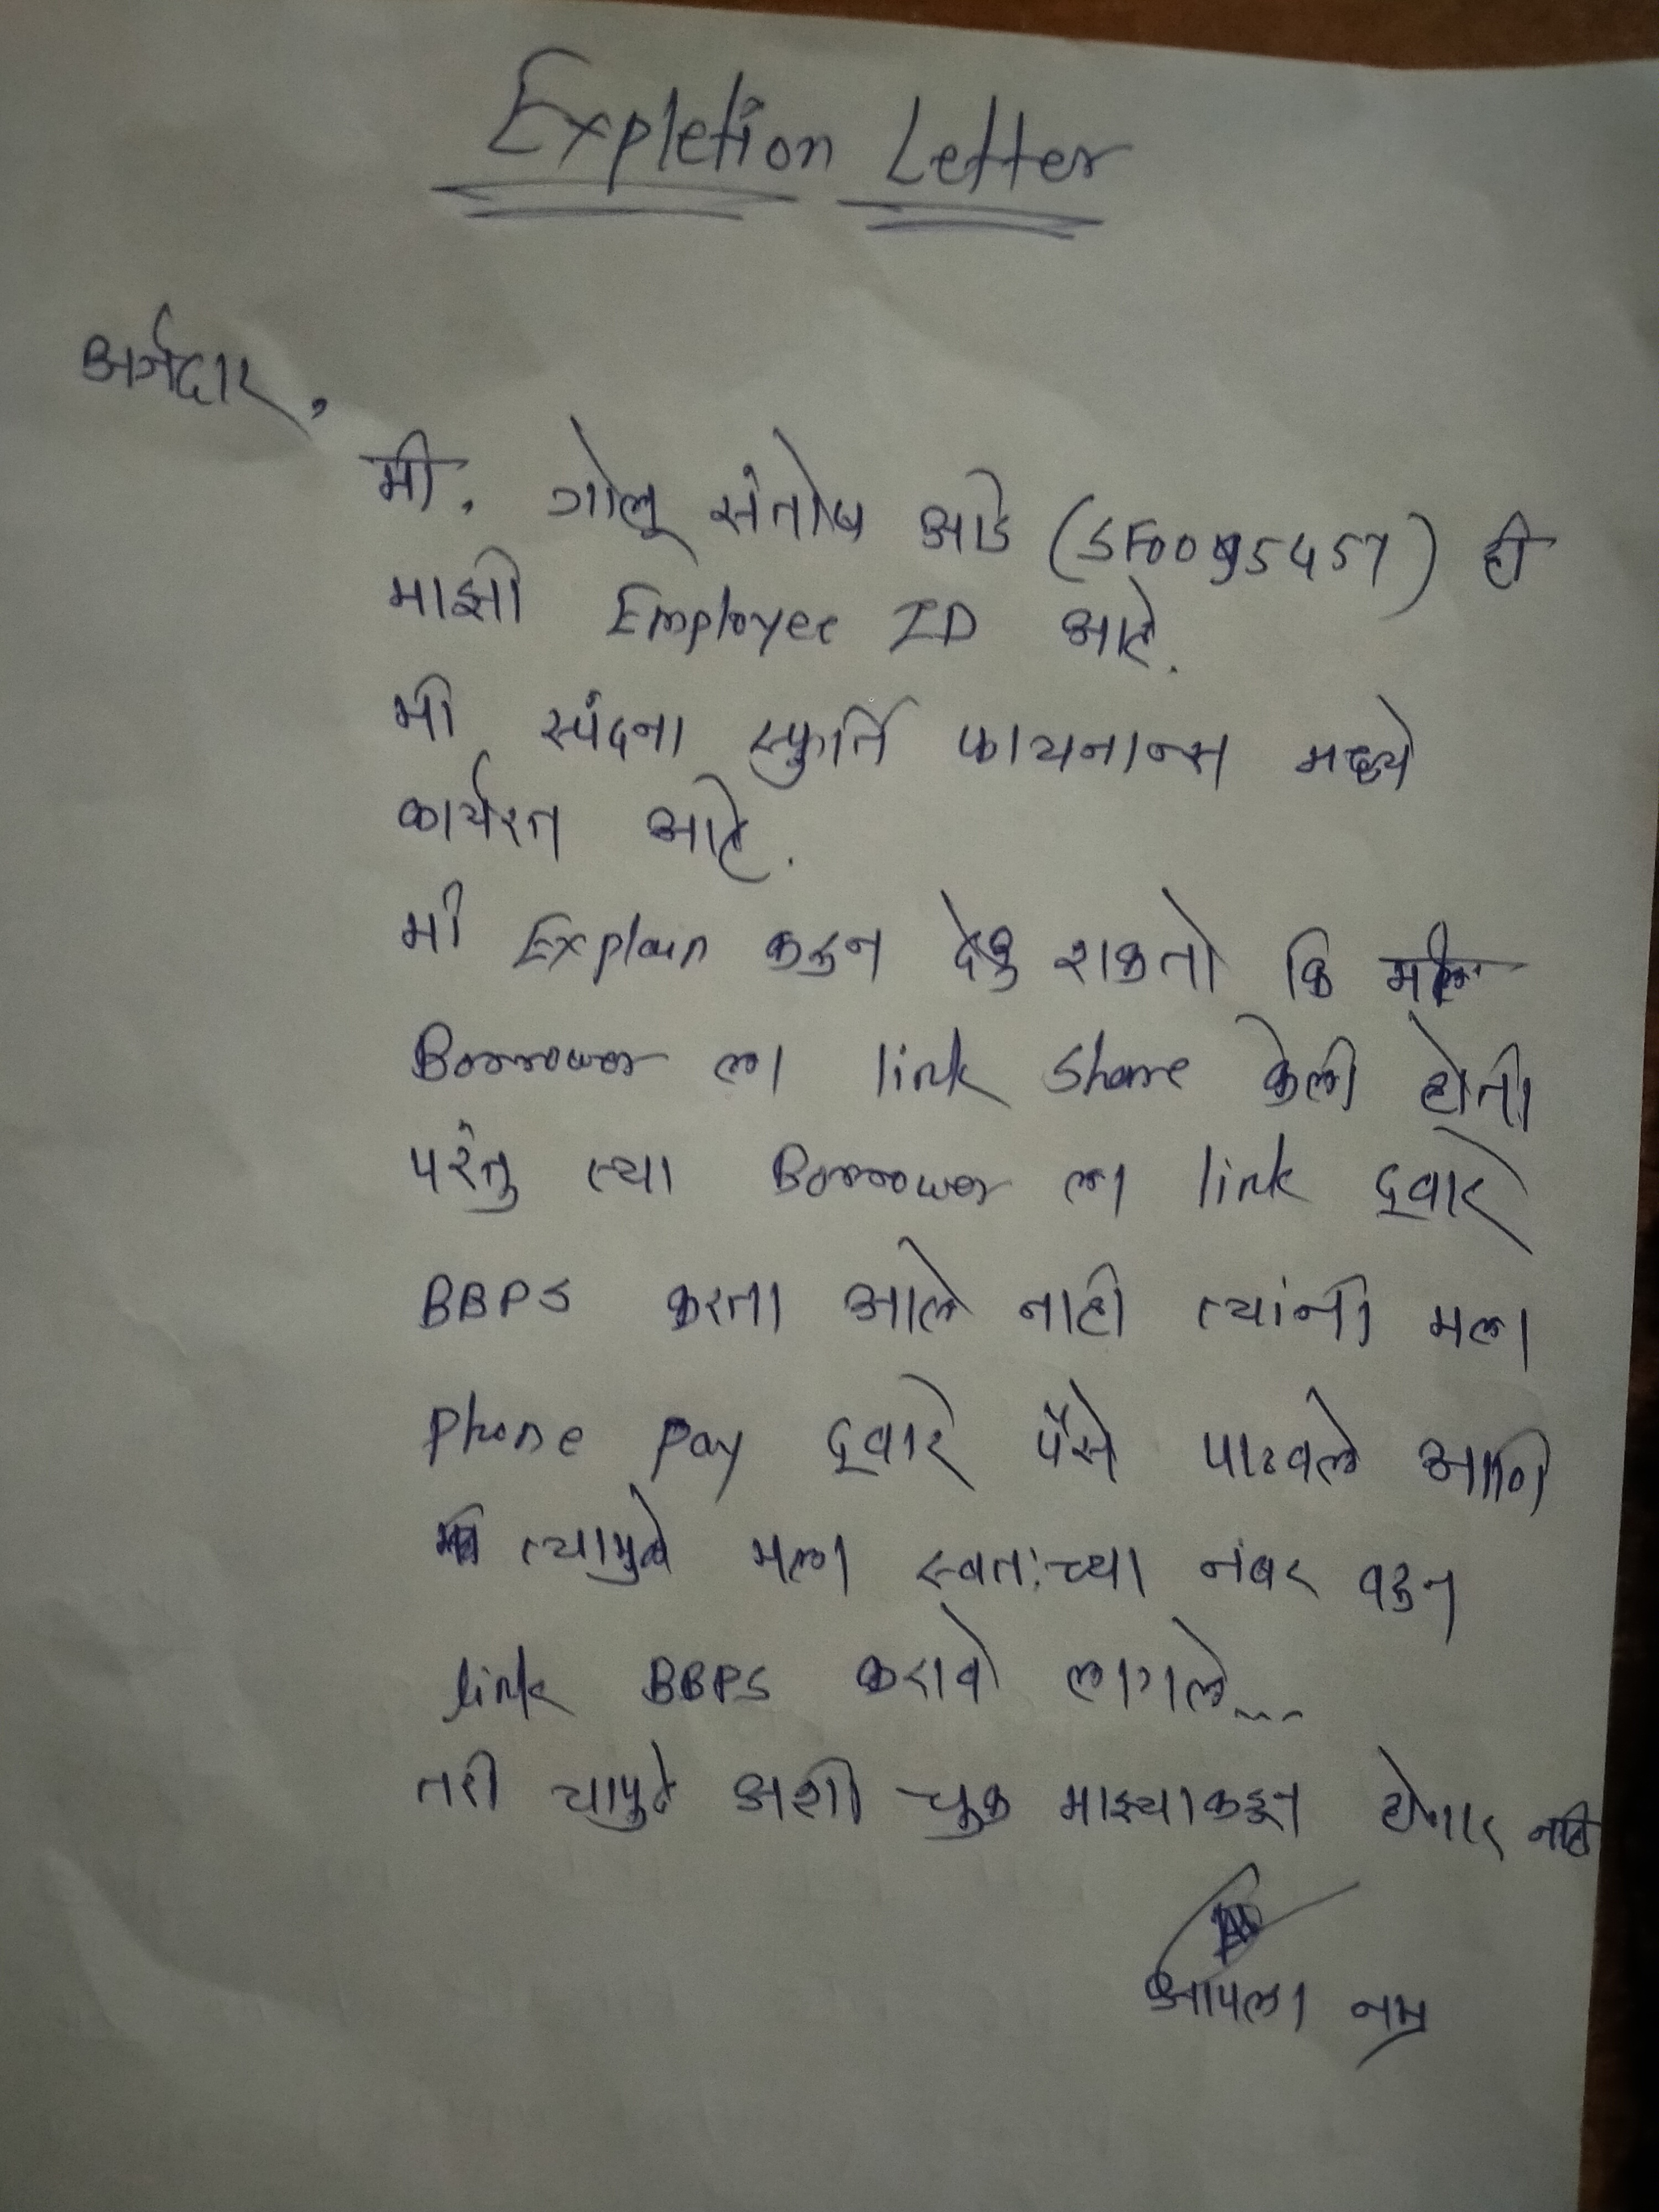 Expletion Letter
अर्जदार,
मी. गोलू संतोष आडे (SF0095457) ही
माझी Employee ID आहे.
मी स्पंदना स्फुर्ति फायनान्स मध्ये
कार्यरत आहे.
मी Explain करुन देवु शकतो कि
Borrower ला link share केली होती
परंतु त्या Borrower ला link द्वारे
BBPS करता आले नाही त्यांनी मला
phone pay द्वारे पैसे पाठवले आणि
त्यामुळे मला स्वत:च्या नंबर वरुन
link BBPS करावे लागले...
तरी यापुढे अशी चुक माझ्याकडून होणार नाही
आपला नम्र